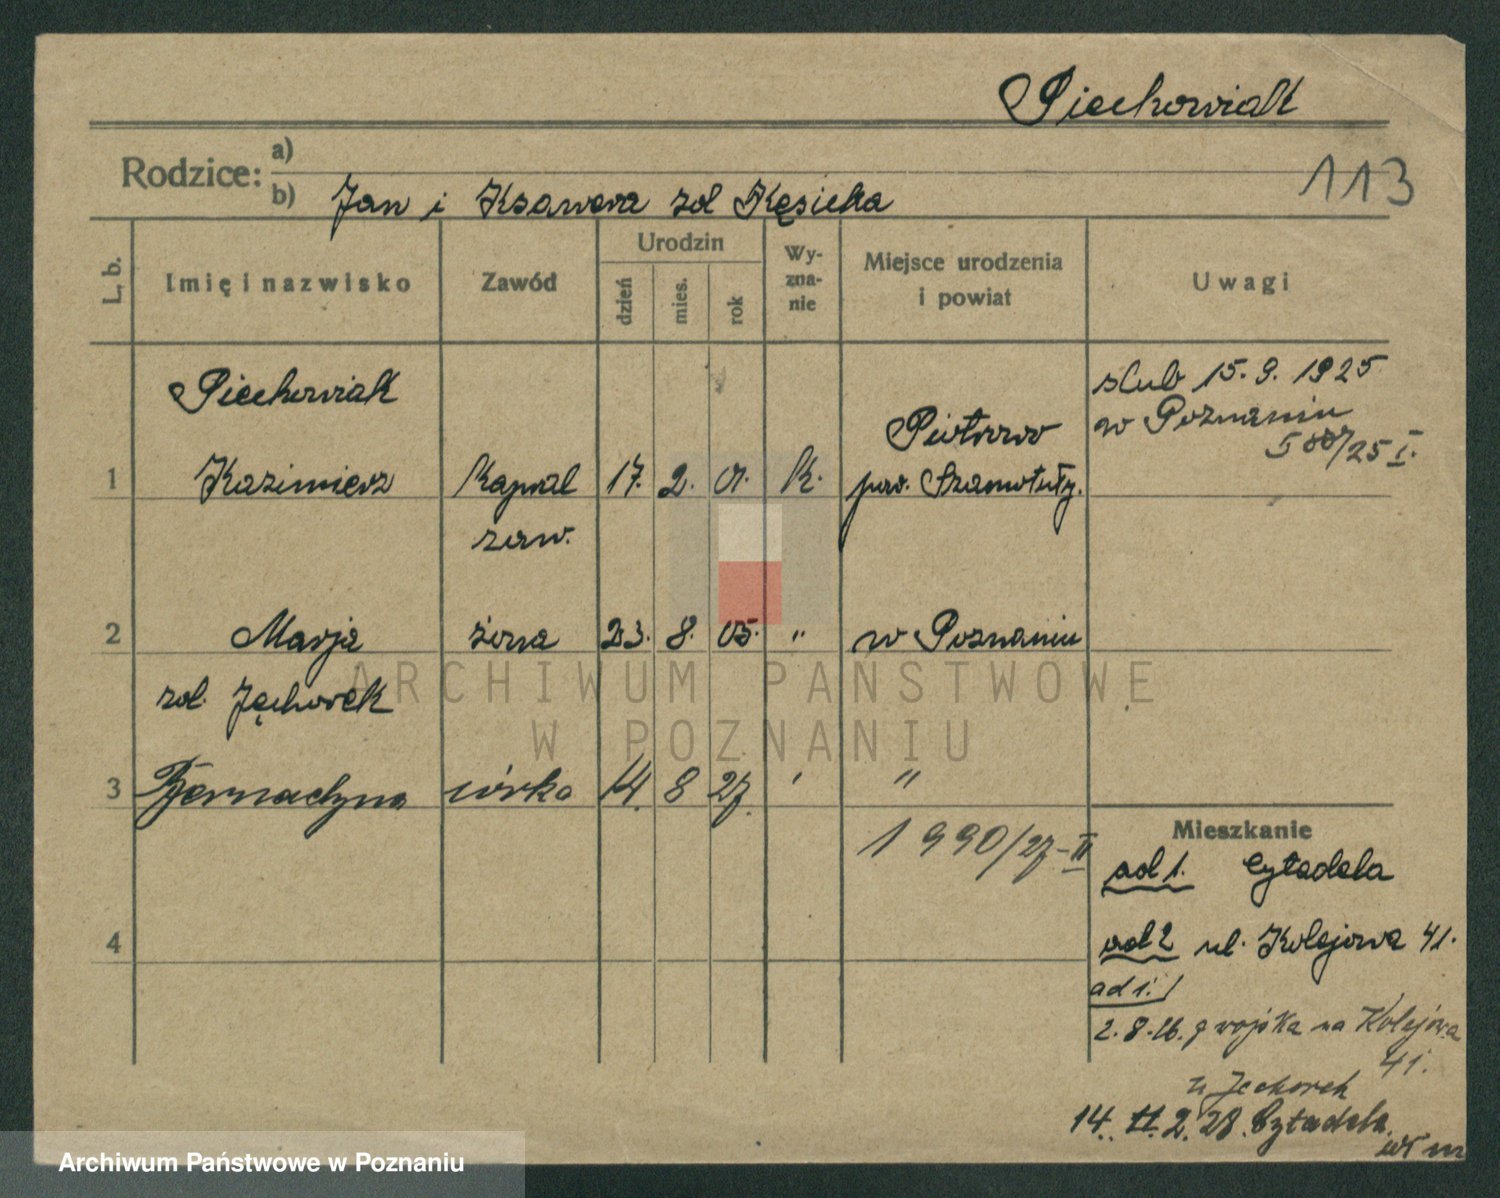 Piechowiak
113
Rodzice: a)
b) Jan i Ksawera zol Kęsicka
L. b.
Imię i nazwisko
Zawód
Urodzin
dzień
mies.
rok
Wy-
zna-
nie
Miejsce urodzenia
i powiat
Uwagi
Piechowiak
1 Kazimierz Kapral 17. 2. 01. k.
zaw.
Piotrowo
pow. Szamotuły.
ślub 15. 9. 1925
w Poznaniu
588/25 I.
2 Marja żona 23. 8. 05. " w Poznaniu
zol. Jęchorek
3 Bernadyna córka 14. 8 27. ' "
1990/27-II
4
Mieszkanie
ad 1. Cytadela
ad 2 ul. Kolejowa 41.
ad 1.
2.8.26. z wojska na Kolejowa
41.
u Jechorek
14. 2. 28. Cytadela
ARCHIWUM PAŃSTWOWE
W POZNANIU
Archiwum Państwowe w Poznaniu